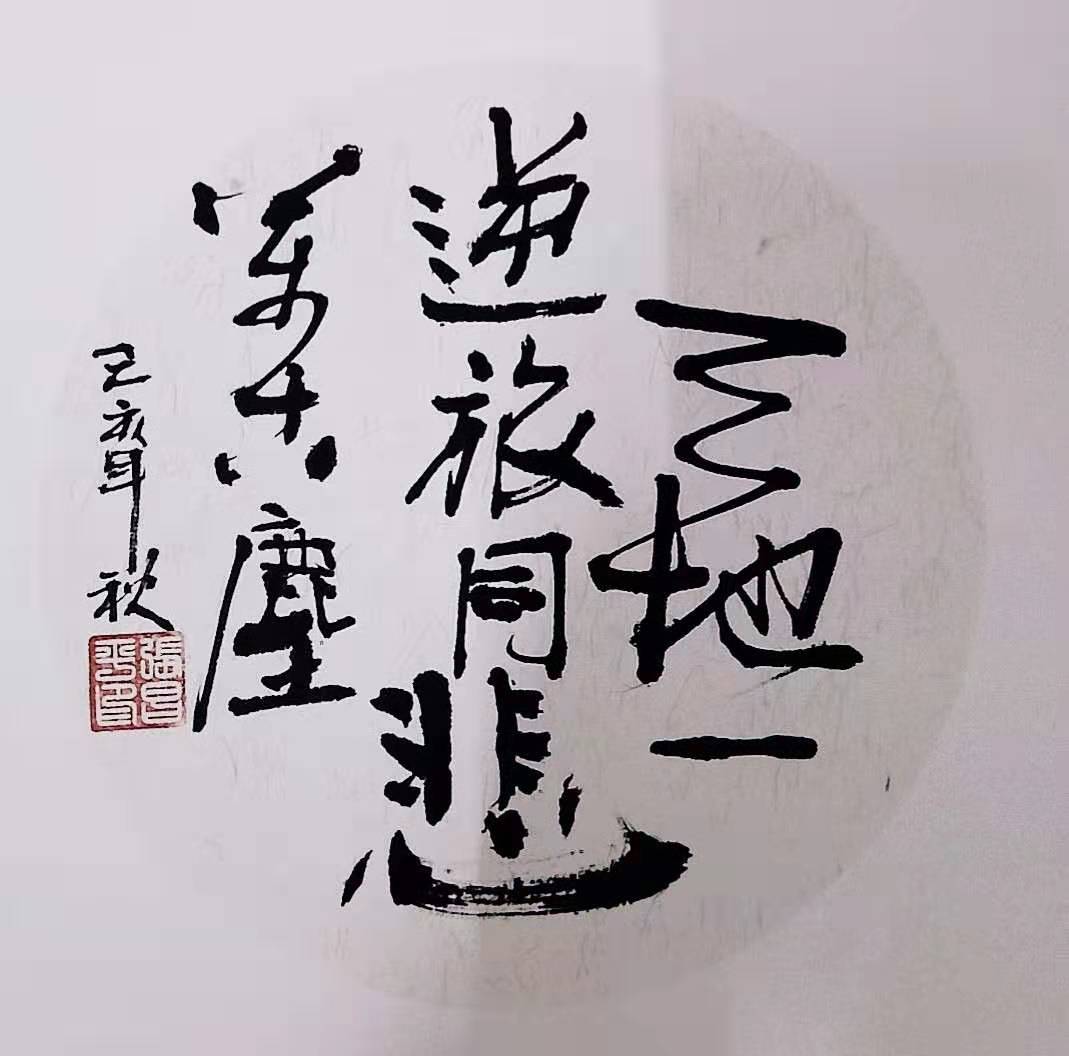 天地一
逆旅同悲
萬古塵
己亥年秋
張
平印